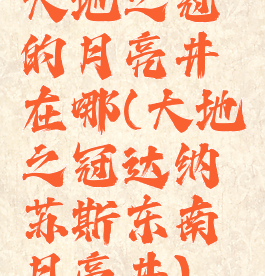 大地之冠
的月亮井
在哪(大地
之冠达纳
苏斯东南
月亮井)